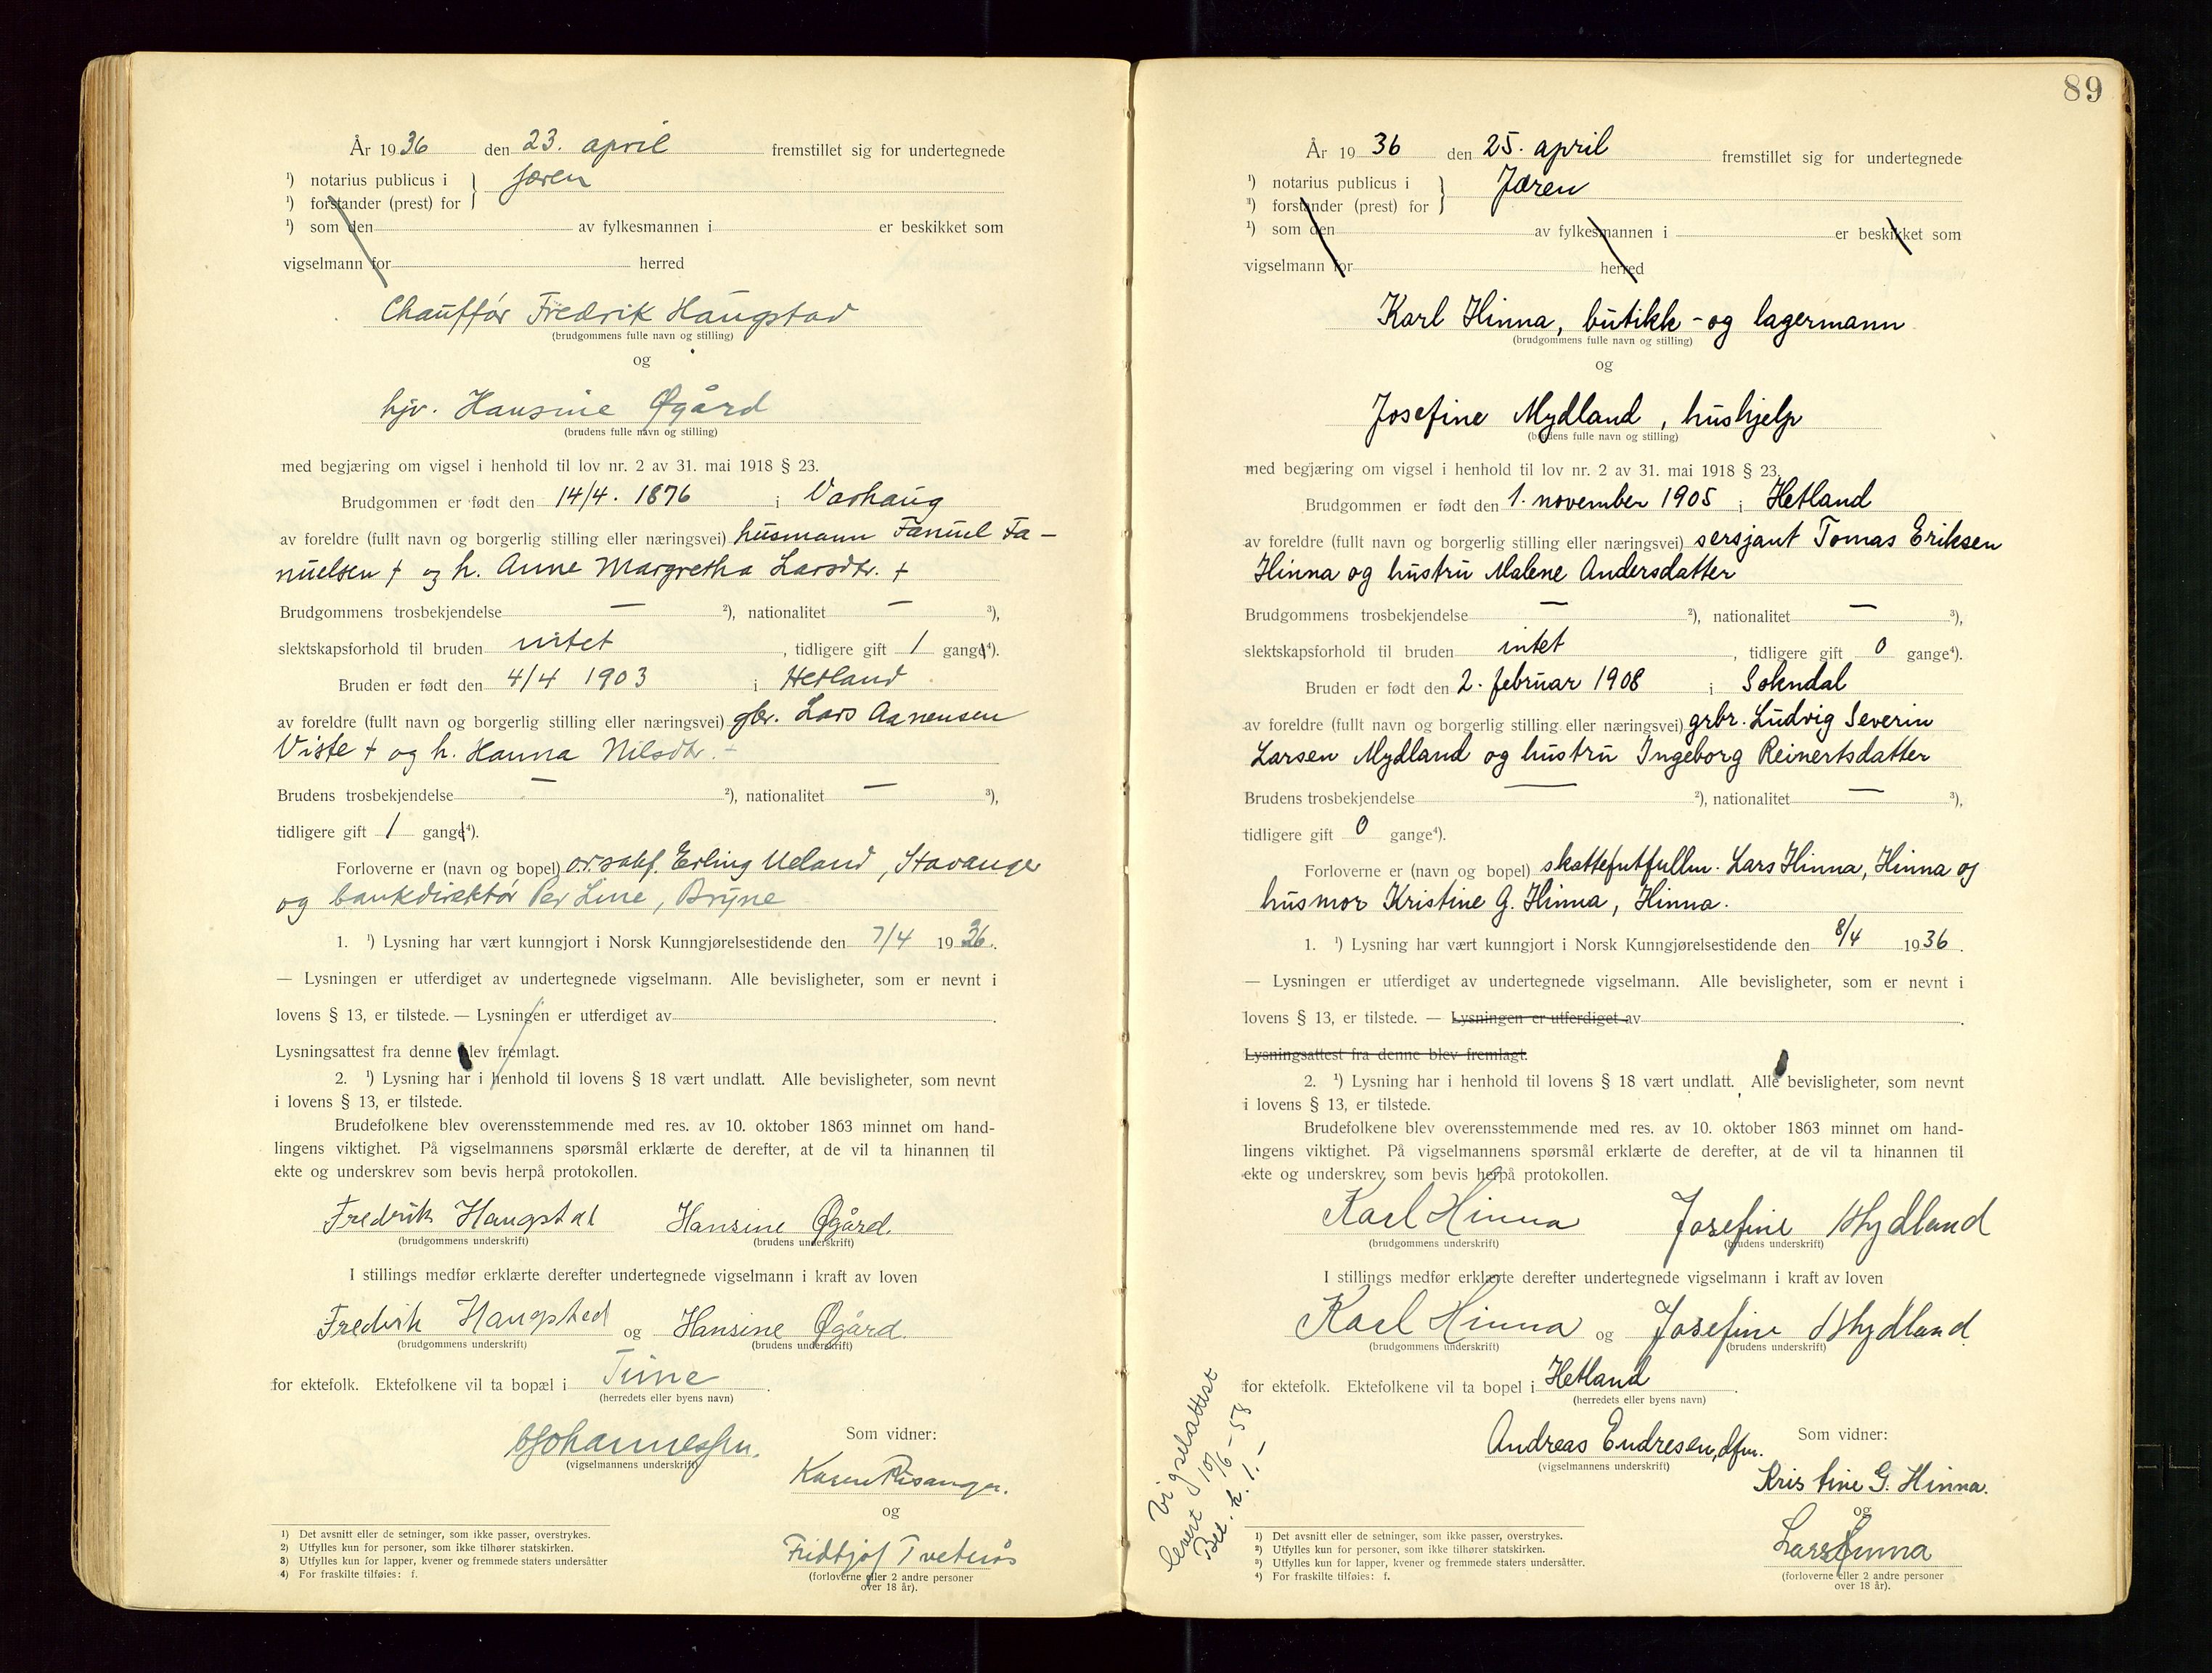 År 1936 den 23. april fremstillet sig for undertegnede
¹) notarius publicus i } Jæren
¹) forstander (prest) for
¹) som den av fylkesmannen i er beskikket som
vigselmann for herred
Chauffør Fredrik Haugstad
(brudgommens fulle navn og stilling)
og
hjv. Hansine Øgård
(brudens fulle navn og stilling)
med begjæring om vigsel i henhold til lov nr. 2 av 31. mai 1918 § 23.
Brudgommen er født den 14/4. 1876 i Varhaug
av foreldre (fullt navn og borgerlig stilling eller næringsvei) husmann Fanuel Fa-
nuelsen † og h. Anne Margretha Larsdtr. †
Brudgommens trosbekjendelse — ²), nationalitet — ³),
slektskapsforhold til bruden intet, tidligere gift 1 gang⁴).
Bruden er født den 4/4 1903 i Hetland
av foreldre (fullt navn og borgerlig stilling eller næringsvei) gbr. Lars Aanensen
Viste † og h. Hanna Nilsdtr. †
Brudens trosbekjendelse — ²), nationalitet — ³),
tidligere gift 1 gang⁴).
Forloverne er (navn og bopel) o.r.sakf. Erling Ueland, Stavanger
og bankdirektør Per Line, Bryne
1. ¹) Lysning har vært kunngjort i Norsk Kunngjørelsestidende den 7/4 1936.
— Lysningen er utferdiget av undertegnede vigselmann. Alle bevisligheter, som er nevnt i
lovens § 13, er tilstede. — Lysningen er utferdiget av .
Lysningsattest fra denne blev fremlagt.
2. ¹) Lysning har i henhold til lovens § 18 vært undlatt. Alle bevisligheter, som nevnt
i lovens § 13, er tilstede.
Brudefolkene blev overensstemmende med res. av 10. oktober 1863 minnet om hand-
lingens viktighet. På vigselmannens spørsmål erklærte de derefter, at de vil ta hinannen til
ekte og underskrev som bevis herpå protokollen.
Fredrik Haugstad Hansine Øgård.
(brudgommens underskrift) (brudens underskrift)
I stillings medfør erklærte derefter undertegnede vigselmann i kraft av loven
Fredrik Haugstad og Hansine Øgård.
(brudgommens underskrift) (brudens underskrift)
for ektefolk. Ektefolkene vil ta bopæl i Time.
(herredets eller byens navn)
Johannessen.
(vigselmannens underskrift)
Som vidner:
Karen Risanger.
og
Fridtjof Tveterås
(forloverne eller 2 andre personer
over 18 år).
1) Det avsnitt eller de setninger, som ikke passer, overstrykes.
2) Utfylles kun for personer, som ikke tilhører statskirken.
3) Utfylles kun for lapper, kvener og fremmede staters undersåtter
4) For fraskilte tilføies: f.
89
År 1936 den 25. april fremstillet sig for undertegnede
¹) notarius publicus i } Jæren
¹) forstander (prest) for
¹) som den av fylkesmannen i er beskikket som
vigselmann for herred
Karl Hinna, butikk- og lagermann
(brudgommens fulle navn og stilling)
og
Josefine Mydland, hushjelp
(brudens fulle navn og stilling)
med begjæring om vigsel i henhold til lov nr. 2 av 31. mai 1918 § 23.
Brudgommen er født den 1. november 1905 i Hetland
av foreldre (fullt navn og borgerlig stilling eller næringsvei) sersjant Tomas Eriksen
Hinna og hustru Malene Andersdatter
Brudgommens trosbekjendelse — ²), nationalitet — ³),
slektskapsforhold til bruden intet, tidligere gift 0 gange⁴).
Bruden er født den 2. februar 1908 i Sokndal
av foreldre (fullt navn og borgerlig stilling eller næringsvei) grbr. Ludvig Severin
Larsen Mydland og hustru Ingeborg Reinertsdatter
Brudens trosbekjendelse — ²), nationalitet — ³),
tidligere gift 0 gange⁴).
Forloverne er (navn og bopel) skattefutfullm. Lars Hinna, Hinna og
husmor Kristine G. Hinna, Hinna.
1. ¹) Lysning har vært kunngjort i Norsk Kunngjørelsestidende den 8/4 1936.
— Lysningen er utferdiget av undertegnede vigselmann. Alle bevisligheter, som er nevnt i
lovens § 13, er tilstede. — Lysningen er utferdiget av .
Lysningsattest fra denne blev fremlagt.
2. ¹) Lysning har i henhold til lovens § 18 vært undlatt. Alle bevisligheter, som nevnt
i lovens § 13, er tilstede.
Brudefolkene blev overensstemmende med res. av 10. oktober 1863 minnet om hand-
lingens viktighet. På vigselmannens spørsmål erklærte de derefter, at de vil ta hinannen til
ekte og underskrev som bevis herpå protokollen.
Karl Hinna Josefine Mydland
(brudgommens underskrift) (brudens underskrift)
I stillings medfør erklærte derefter undertegnede vigselmann i kraft av loven
Karl Hinna og Josefine Mydland.
(brudgommens underskrift) (brudens underskrift)
for ektefolk. Ektefolkene vil ta bopel i Hetland.
(herredets eller byens navn)
Andreas Endresen, dfm.
(vigselmannens underskrift)
Som vidner:
Kristine G. Hinna.
og
Lars Hinna
(forloverne eller 2 andre personer
over 18 år).
Vigselattest
levert 10/6-58
Bet. k. 1.-
1) Det avsnitt eller de setninger, som ikke passer, overstrykes.
2) Utfylles kun for personer, som ikke tilhører statskirken.
3) Utfylles kun for lapper, kvener og fremmede staters undersåtter.
4) For fraskilte tilføies: f.